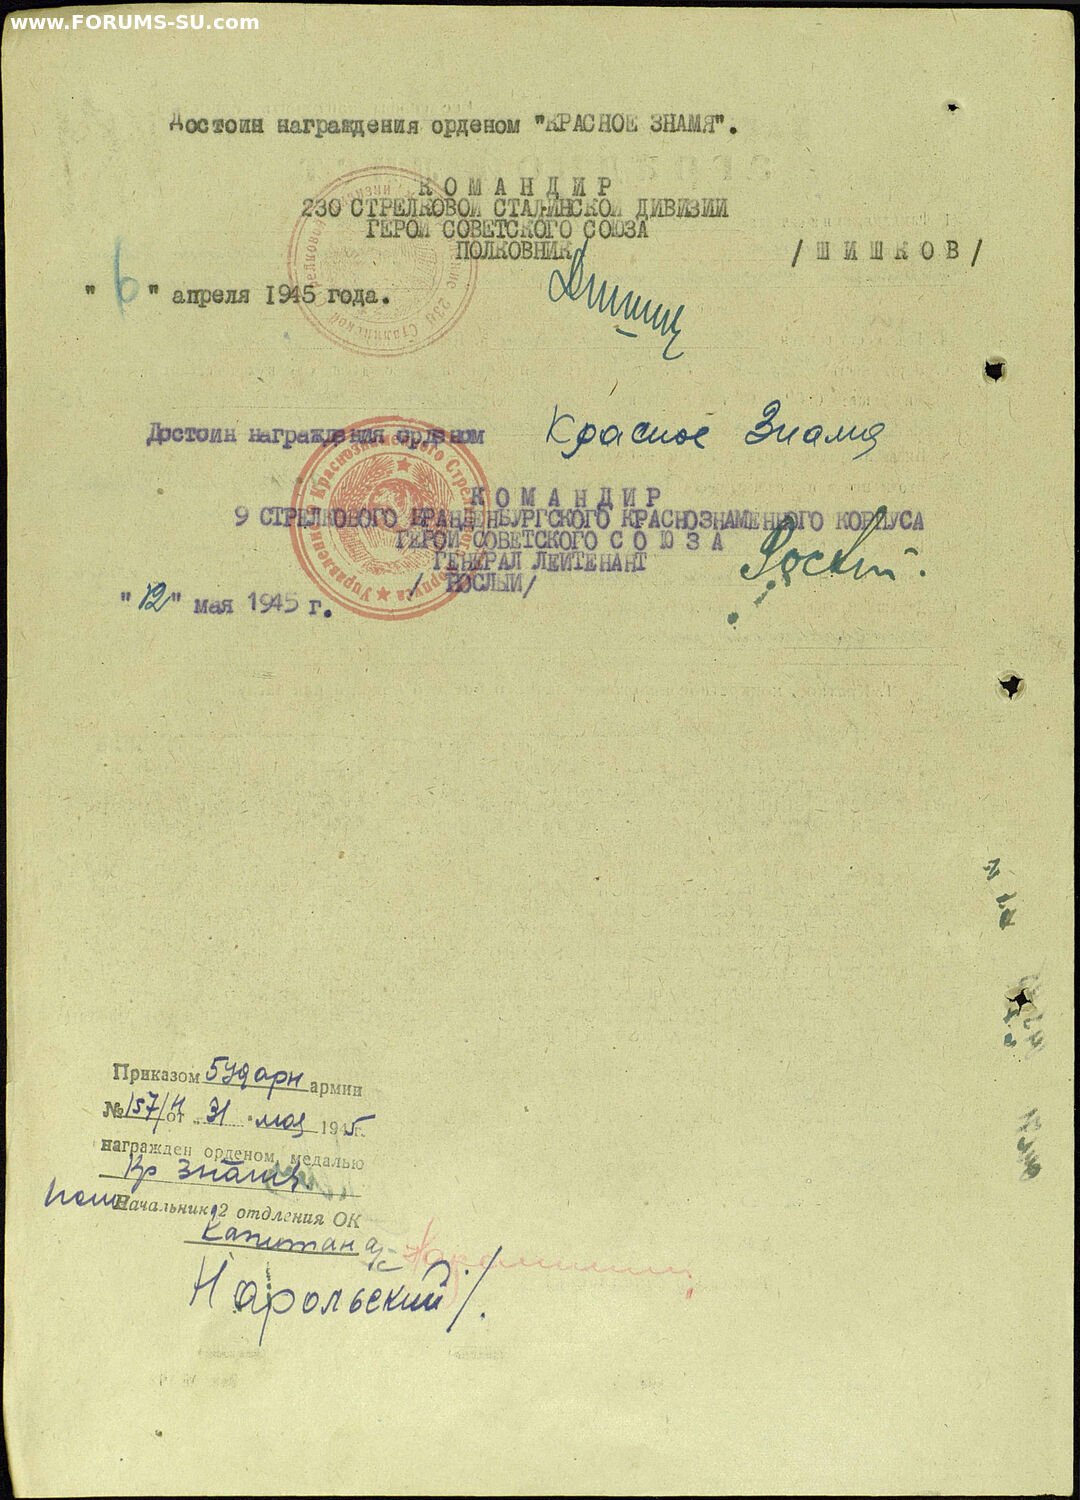 www.FORUMS-SU.com
Достоин награждения орденом "КРАСНОЕ ЗНАМЯ".
КОМАНДИР
230 СТРЕЛКОВОЙ СТАЛИНСКОЙ ДИВИЗИИ
ГЕРОЙ СОВЕТСКОГО СОЮЗА
ПОЛКОВНИК /ШИШКОВ/
"6" апреля 1945 года.
Достоин награждения орденом Красное Знамя
КОМАНДИР
9 СТРЕЛКОВОГО БРАНДЕНБУРГСКОГО КРАСНОЗНАМЕННОГО КОРПУСА
ГЕРОЙ СОВЕТСКОГО СОЮЗА
ГЕНЕРАЛ ЛЕЙТЕНАНТ
/ РОСЛЫЙ/
"12" мая 1945 г.
Приказом 5 ударн армии
№ 157/н от 31 мая 1945г.
награжден орденом, медалью
Кр Знамя
Начальник 2 отдления ОК
Капитан а/с